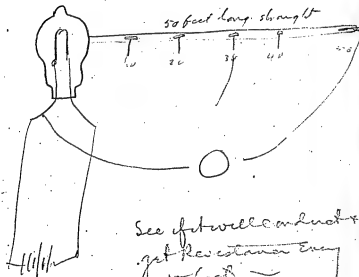 50 feet long straight
10 20 30 40 50
See if it will conduct &
get Resistance Every